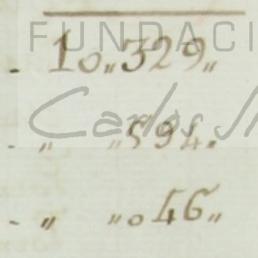 FUNDACI
- 10„329„
Carlos
„ „594„
- „ „046„